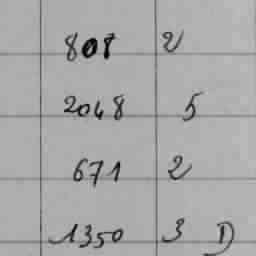 808 2
2048 5
671 2
1350 3 D